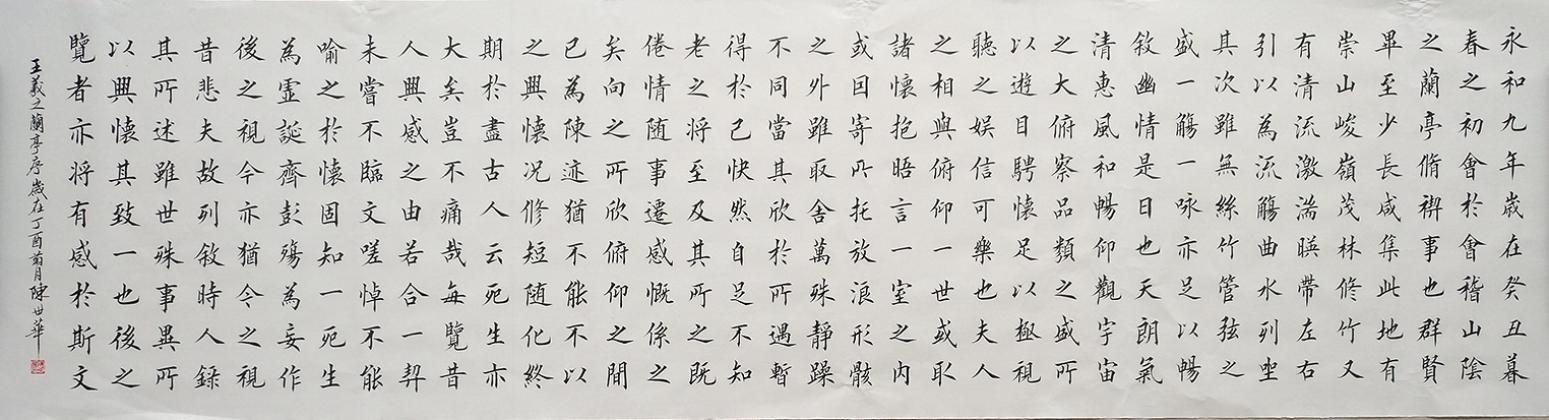 永和九年歲在癸丑暮
春之初會於會稽山陰
之蘭亭脩禊事也群賢
畢至少長咸集此地有
崇山峻嶺茂林修竹又
有清流激湍暎帶左右
引以為流觴曲水列坐
其次雖無絲竹管弦之
盛一觴一咏亦足以暢
敘幽情是日也天朗氣
清惠風和暢仰觀宇宙
之大俯察品類之盛所
以遊目騁懷足以極視
聽之娛信可樂也夫人
之相與俯仰一世或取
諸懷抱晤言一室之內
或因寄所托放浪形骸
之外雖取舍萬殊靜躁
不同當其欣於所遇暫
得於己快然自足不知
老之將至及其所之既
倦情随事遷感慨係之
矣向之所欣俯仰之間
已為陳迹猶不能不以
之興懷况修短随化終
期於盡古人云死生亦
大矣豈不痛哉每覽昔
人興感之由若合一契
未嘗不臨文嗟悼不能
喻之於懷固知一死生
為虛誕齊彭殤為妄作
後之視今亦猶今之視
昔悲夫故列敘時人錄
其所述雖世殊事異所
以興懷其致一也後之
覽者亦将有感於斯文
王羲之蘭亭序歲在丁酉菊月陳世華